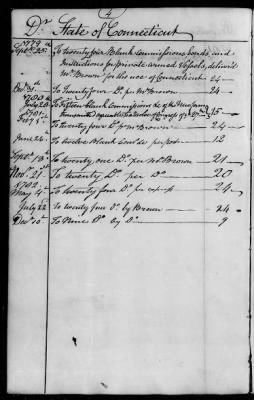 4
Dr. State of Connecticut
1779
Septr. 25. To twenty four Blank commissions, bonds, and
Instructions for private armed Vessels, deliv'd
Mr. Brown for the use of Connecticut 24
Decr. 31. To Twenty four Do. per Mr. Brown 24
1780
July 20 To Fifteen blank commissions &c of the same
transmitted 15
1781
Feby 5th To twenty four Do. pr Mr. Brown 24
June 22. To twelve Blank Com. &c per post 12
Septr. 13th To twenty one Do. per Mr. Brown 21
Novr. 21. To twenty Do. per Do. 20
1782
May 4th To twenty four Do. per 24
July 22 To twenty four Do. by Brown 24
Decr. 10th To Nine Do. by Do. 9